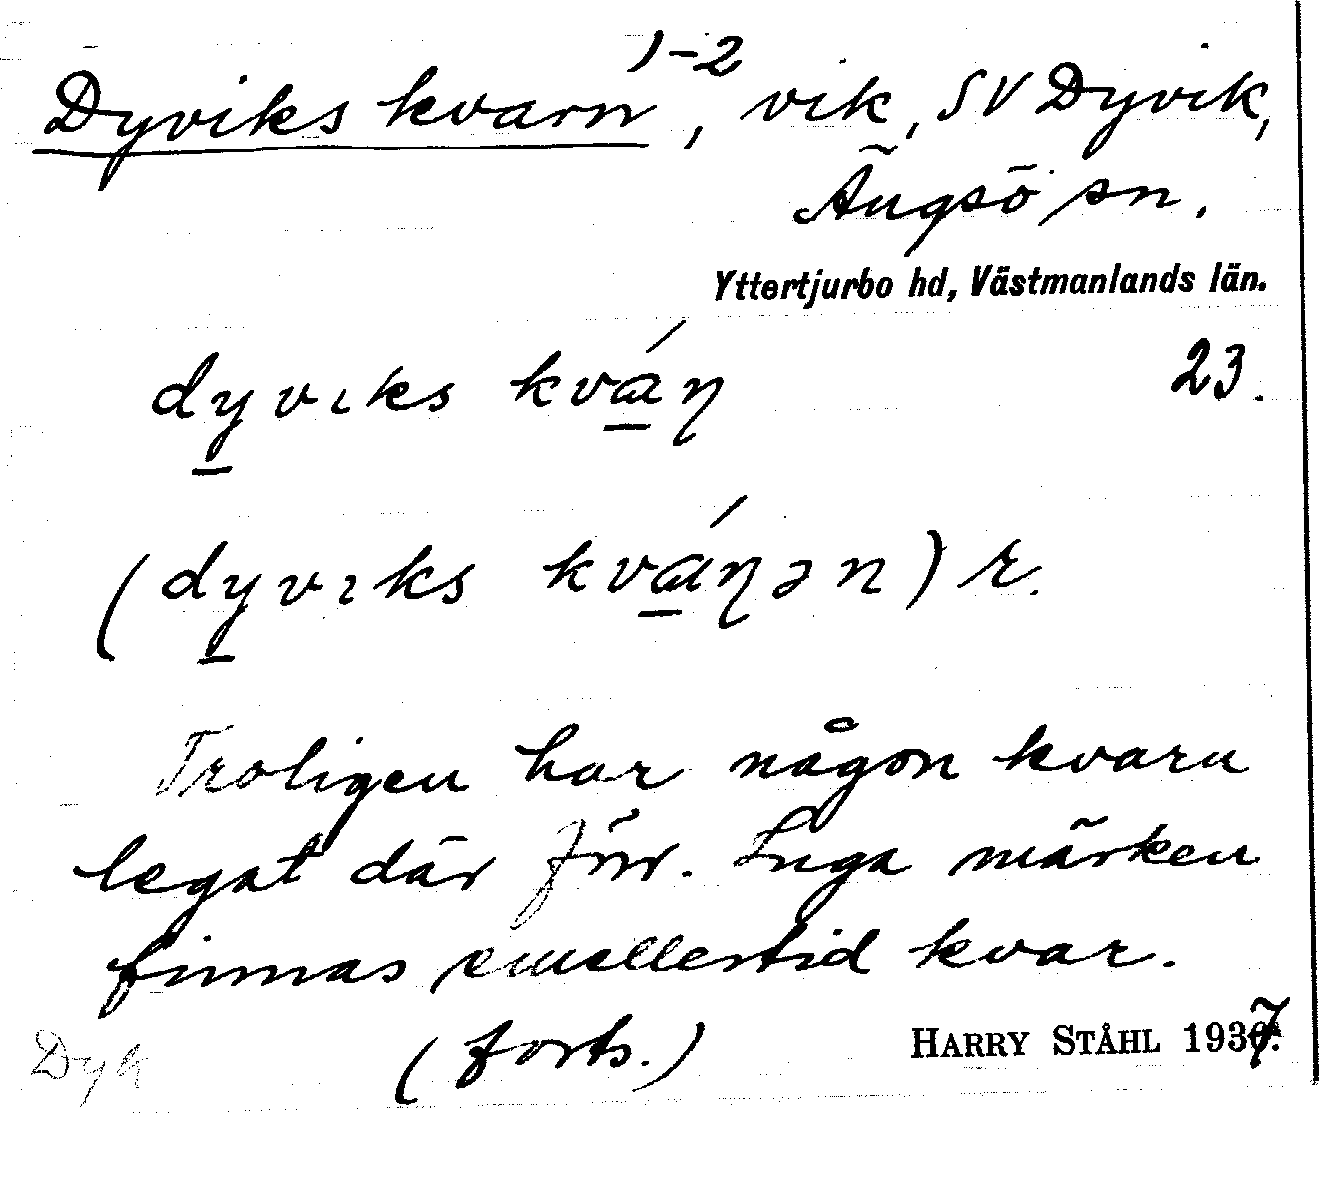 Dyviks kvarn 1-2, vik, SV Dyvik,
Ängsö sn.
Yttertjurbo hd, Västmanlands län.
dyvıks kváɳ 23.
(dyvıks kváɳən) r.
Troligen har någon kvarn
legat där förr. Inga märken
finnas emellertid kvar.
(forts.) HARRY STÅHL 1937.
Dyk